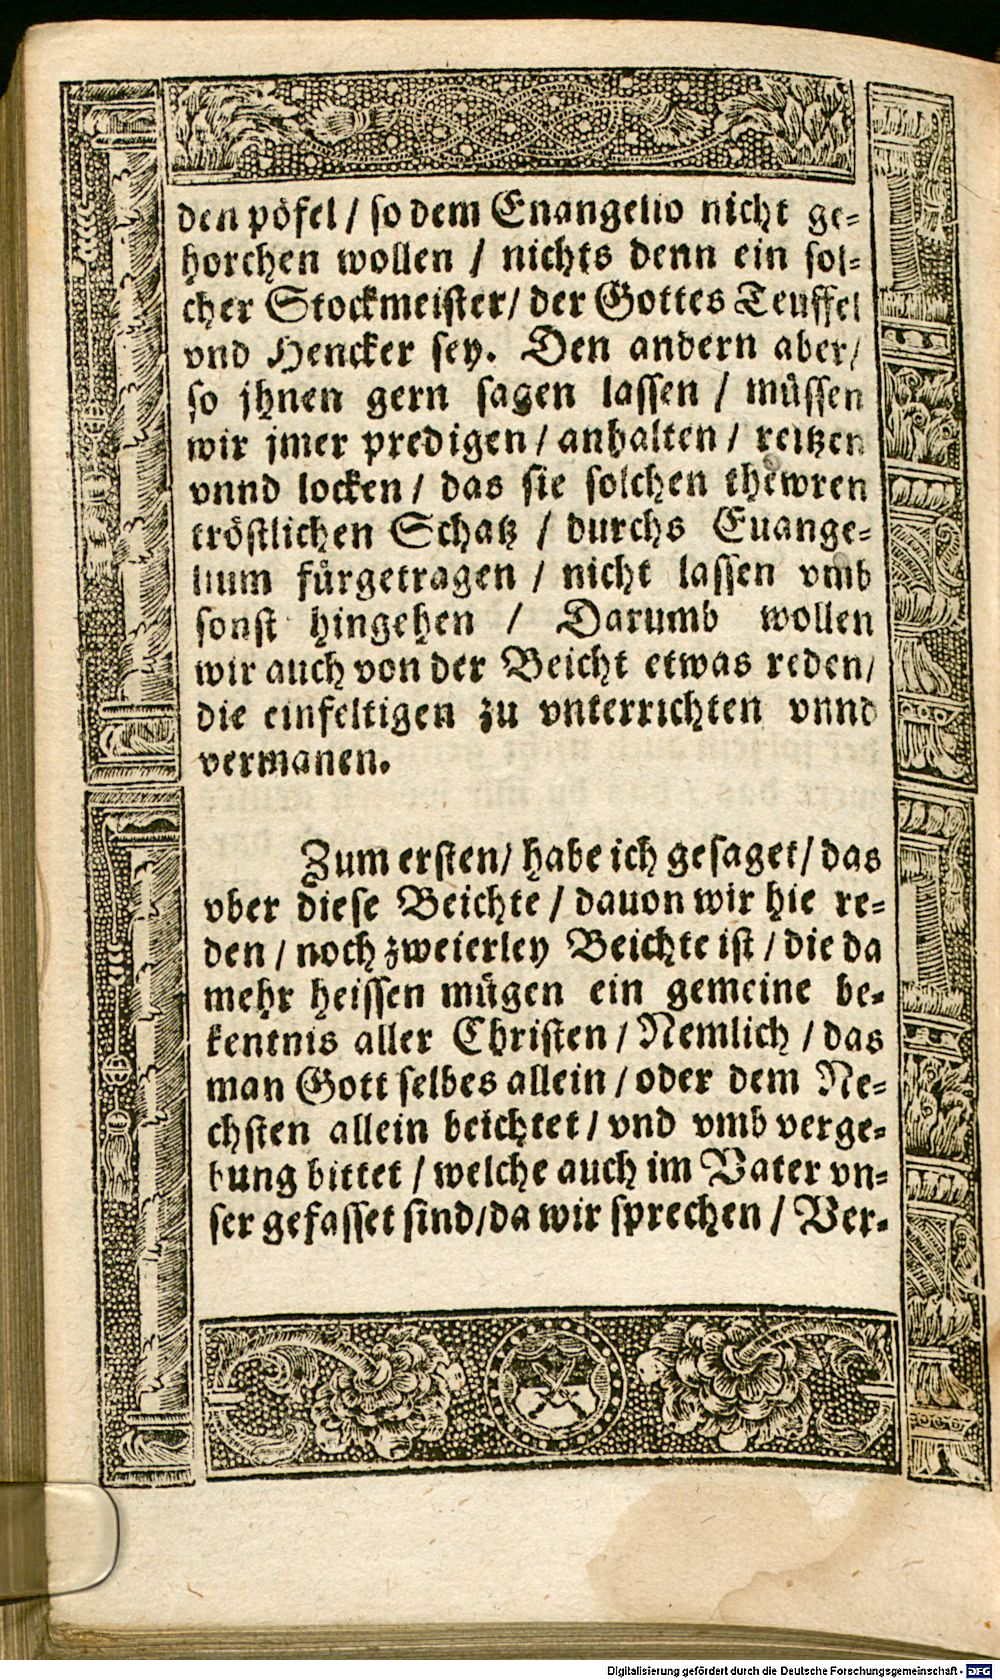 den pöfel / so dem Euangelio nicht ge-
horchen wollen / nichts denn ein sol-
cher Stockmeister / der Gottes Teuffel
vnd Hencker sey. Den andern aber /
so jhnen gern sagen lassen / müssen
wir jmer predigen / anhalten / reitzen
vnnd locken / das sie solchen thewren
tröstlichen Schatz / durchs Euange-
lium fürgetragen / nicht lassen vmb
sonst hingehen / Darumb wollen
wir auch von der Beicht etwas reden /
die einfeltigen zu vnterrichten vnnd
vermanen.
Zum ersten / habe ich gesaget / das
vber diese Beichte / dauon wir hie re-
den / noch zweierley Beichte ist / die da
mehr heissen mügen ein gemeine be-
kentnis aller Christen / Nemlich / das
man Gott selbes allein / oder dem Ne-
chsten allein beichtet / vnd vmb verge-
bung bittet / welche auch im Vater vn-
ser gefasset sind / da wir sprechen / Ver-
Digitalisierung gefördert durch die Deutsche Forschungsgemeinschaft - DFG